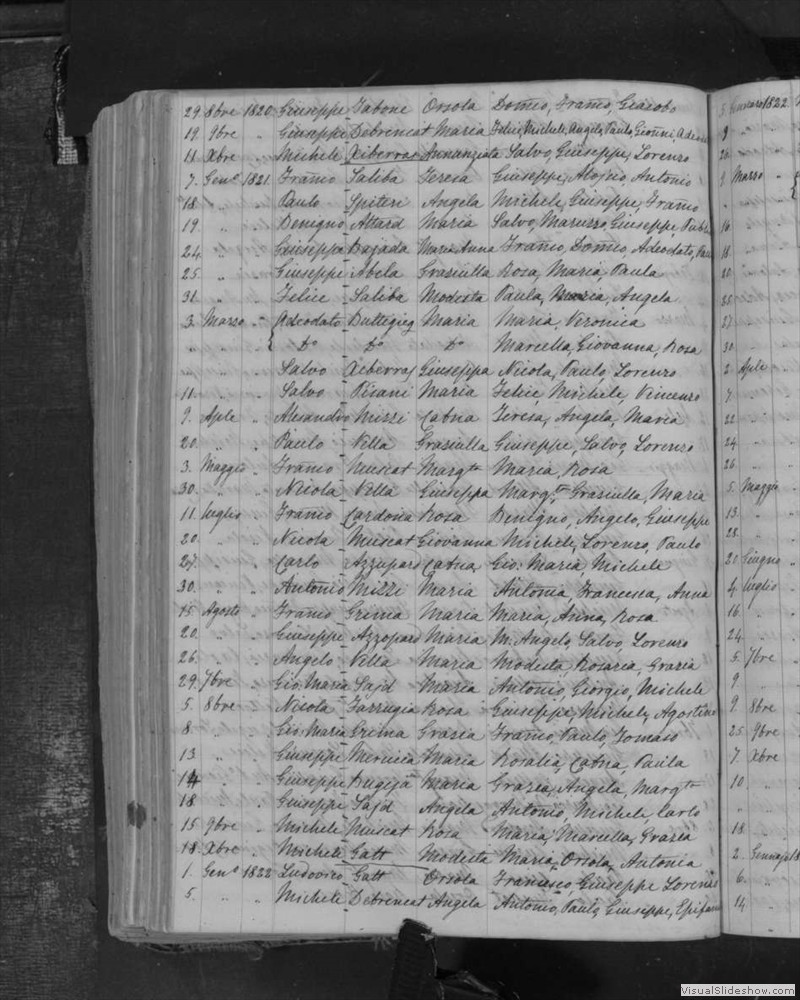 29 8bre 1820 Giuseppe Tabone Orsola Domco, Framo, Giacobo
19 9bre " Giuseppe Debrincat Maria Felice, Michele, Angelo, Paulo, Gionni,
11 Xbre " Michele Xiberras Annunziata Salvo, Giuseppe, Lorenzo
7. Geno 1821 Framo Saliba Teresa Giuseppe, Alojsio, Antonio
18 " " Paulo Spiteri Angela Michele, Giuseppe, Framo
19. " " Benigno Attard Maria Salvo, Maruzzo, Giuseppe,
24 " " Giuseppa Bajada Maria Anna Framo, Domco, Adeodato,
25. " " Giuseppe Abela Grasiulla Rosa, Maria, Paula
31 " " Felice Saliba Modesta Paula, Maria, Angela
3. Marzo " Adeodato Buttigieg Maria Maria, Veronica
" " { Do Do Do Marcella, Giovanna, Rosa
" " " Salvo Xiberras Giuseppa Nicola, Paulo, Lorenzo
11 " " Salvo Pisani Maria Felice, Michele, Vincenzo
9. Aple " Alesandro Mizzi Catna Teresa, Angela, Maria
20 " " Paulo Vella Grasiulla Giuseppe, Salvo, Lorenzo
3. Maggio " Framo Muscat Margta Maria, Rosa
30. " " Nicola Vella Giuseppa Margta, Grasiulla, Maria
11 luglio " Framo Cardona Rosa Benigno, Angelo, Giuseppe
20 " " Nicola Muscat Giovanna Michele, Lorenzo, Paulo
27. " " Carlo Azzupard Catna Gio Maria, Michele
30. " " Antonio Mizzi Maria Antonia, Francesca, Anna
15 Agosto " Framo Grima Maria Maria, Anna, Rosa
20. " " Giuseppe Azzopard Maria M. Angelo, Salvo, Lorenzo
26. " " Angelo Vella Maria Modesta, Rosaria, Grazia
29. 7bre " Gio Maria Sajd Maria Antonio, Giorgio, Michele
5. 8bre " Nicola Farrugia Rosa Giuseppe, Michele, Agostino
8 " " Gio Maria Grima Grazia Framo, Paulo, Tomaso
13 " " Giuseppe Mernica Maria Rosalia, Catna, Paula
14 " " Giuseppe Bugeja Maria Grazia, Angela, Margta
18 " " Giuseppe Sajd Angela Antonio, Michele, Carlo
15 9bre " Michele Muscat Rosa Maria, Marcella, Grazia
18. Xbre " Michele Gatt Modesta Maria, Orsola, Antonia
1. Geno 1822 Ludovico Gatt Orsola Francesco, Giuseppe, Lorenzo
5. " " Michele Debrincat Angela Antonio, Paulo, Giuseppe,
3 Gennaro 1822
9
26
9 Marzo "
16
18
20
25
27
30
2 Aple
7
22
24
26
5 Maggio
13
28
20 Giugno
4 luglio
16
24
5. 7bre
9
9. 8bre
25 9bre
7. Xbre
10
18
2. Gennajo
6.
14
VisualSlideshow.com